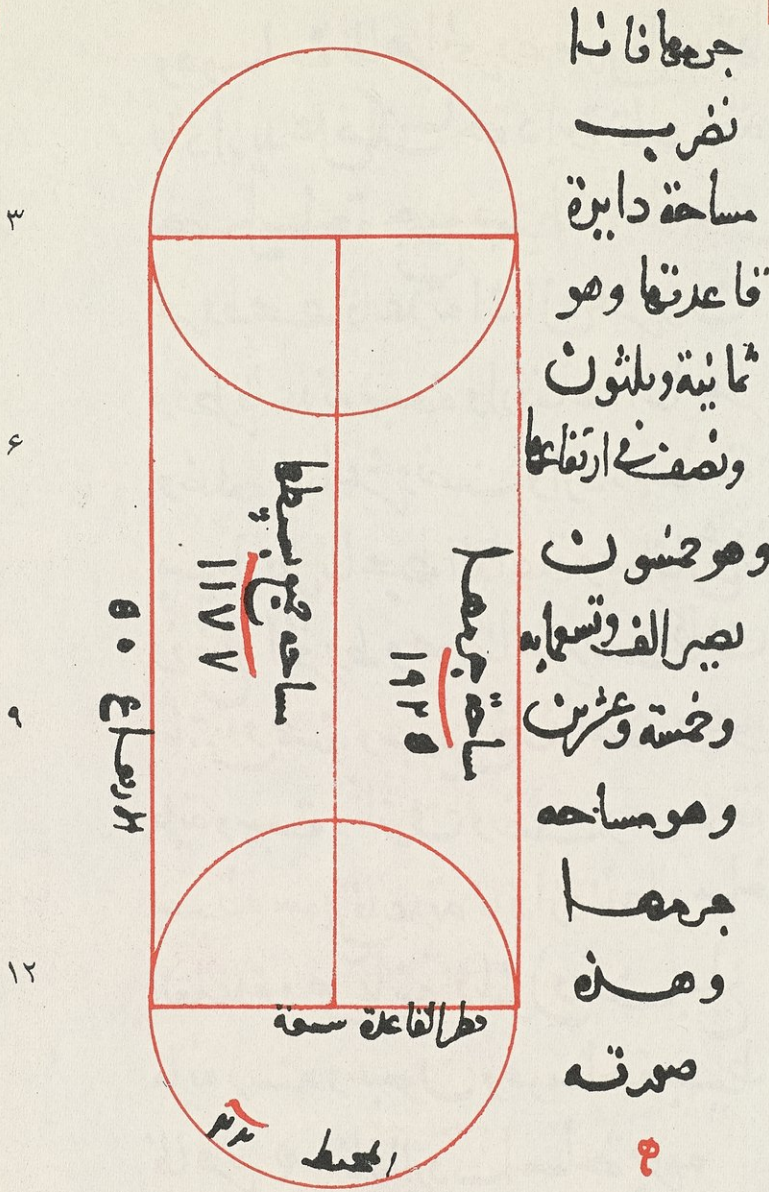 جرمها فانا
نضرب
مساحة دايرة
قاعدتها وهو
ثمانية وثلثون
ونصف في ارتفاعها
وهو خمسون
يصير الف وتسعمايه
وخمسة وعشرين
وهو مساحه
جرمها
وهذه
صورته
٣
۶
٩
١٢
مساحة جرمها
١٩٢٥
مساحه جميع بسيطها
١١٧٧
الارتفاع ٥٠
قطر القاعدة سبعة
المحيط
٢٢